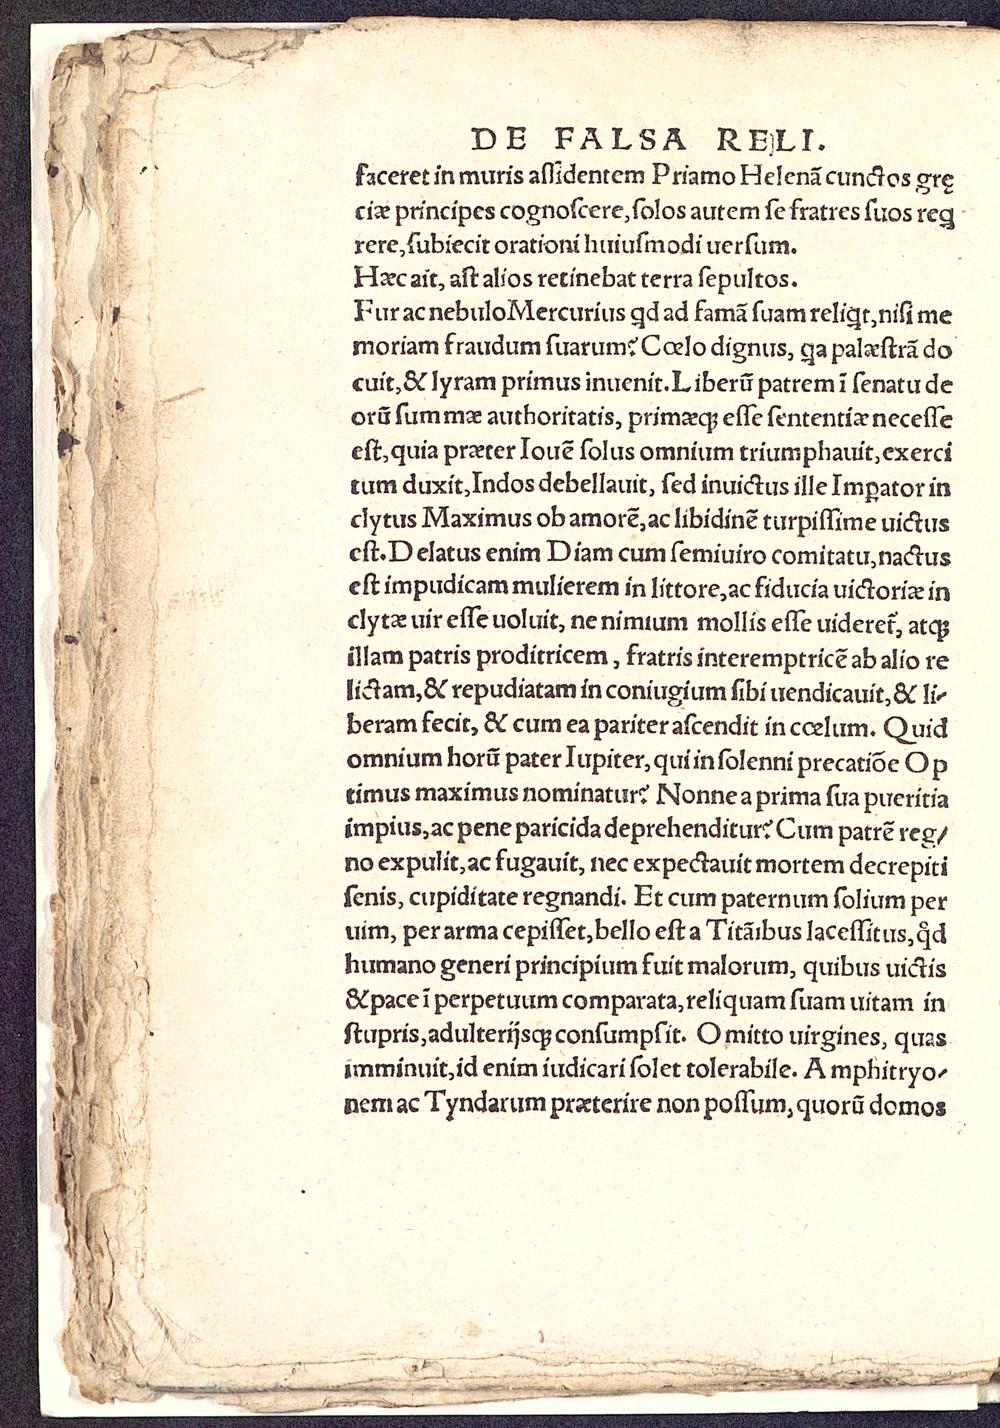 DE FALSA RELI.
faceret in muris aſſidentem Priamo Helenā cunctos grę
ciæ principes cognoſcere, ſolos autem ſe fratres ſuos reꝗ
rere, ſubiecit orationi huiuſmodi uerſum.
Hæc ait, aſt alios retinebat terra ſepultos.
Fur ac nebulo Mercurius ꝗd ad famā ſuam reliꝗt, niſi me
moriam fraudum ſuarum? Cœlo dignus, ꝗa palæſtrā do
cuit, & lyram primus inuenit. Liberū patrem ī ſenatu de
orū ſummæ authoritatis, primæqꝫ eſſe ſententiæ neceſſe
eſt, quia præter Iouē ſolus omnium triumphauit, exerci
tum duxit, Indos debellauit, ſed inuictus ille Imꝑator in
clytus Maximus ob amorē, ac libidinē turpiſſime uictus
eſt. Delatus enim Diam cum ſemiuiro comitatu, nactus
eſt impudicam mulierem in littore, ac fiducia uictoriæ in
clytæ uir eſſe uoluit, ne nimium mollis eſſe uideret᷑, atqꝫ
illam patris proditricem, fratris interemptricē ab alio re
lictam, & repudiatam in coniugium ſibi uendicauit, & li-
beram fecit, & cum ea pariter aſcendit in cœlum. Quid
omnium horū pater Iupiter, qui in ſolenni precatiōe Op
timus maximus nominatur? Nonne a prima ſua pueritia
impius, ac pene paricida deprehenditur? Cum patrē reg/
no expulit, ac fugauit, nec expectauit mortem decrepiti
ſenis, cupiditate regnandi. Et cum paternum ſolium per
uim, per arma cepiſſet, bello eſt a Titāibus laceſſitus, qͦd
humano generi principium fuit malorum, quibus uictis
& pace ī perpetuum comparata, reliquam ſuam uitam in
ſtupris, adulterijsqꝫ conſumpſit. Omitto uirgines, quas
imminuit, id enim iudicari ſolet tolerabile. Amphitryo-
nem ac Tyndarum præterire non poſſum, quorū domos